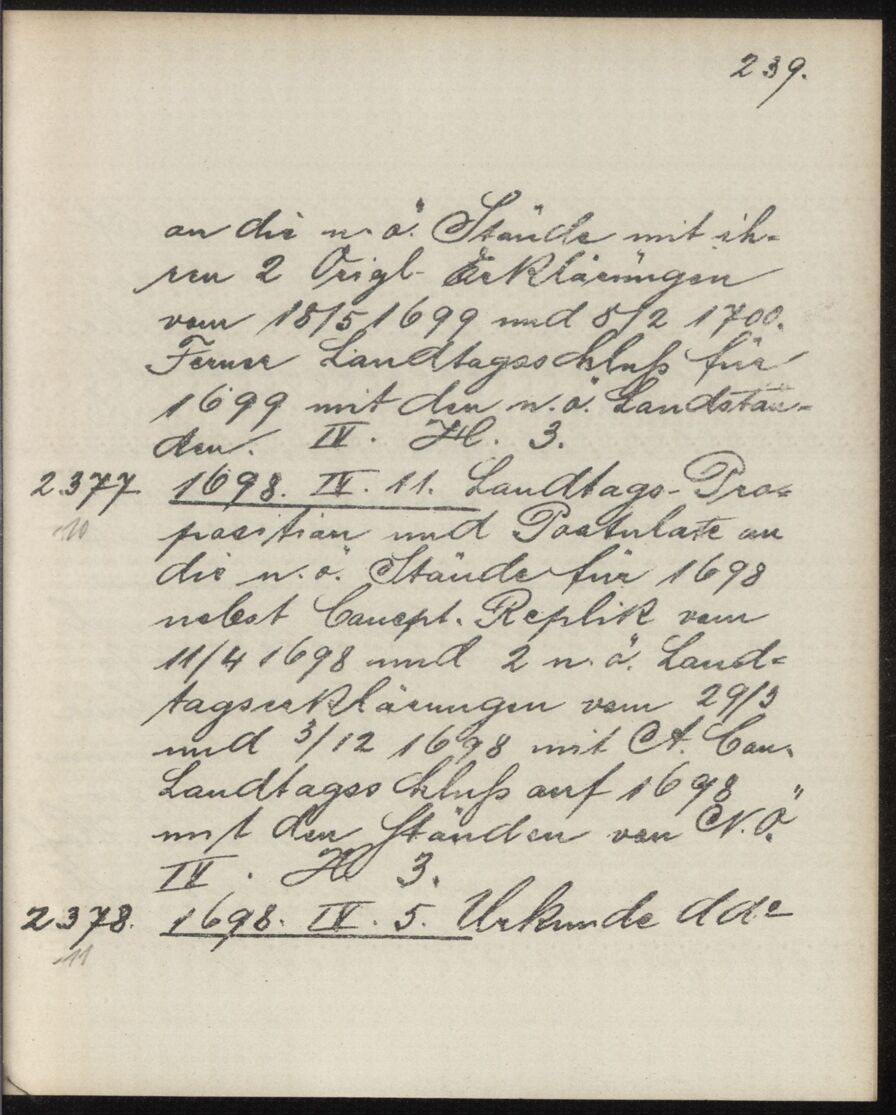 239.
an die n. ö. Stände mit ih-
ren 2 Origl- Erklärungen
vom 18/5 1699 und 8/2 1700.
Ferner Landtagsschluß für
1699 mit den n. ö. Landstän-
den. IV. H. 3.
2.377 1698. IV. 11. Landtags-Pro-
-10
position und Postulate an
die n. ö. Stände für 1698
nebst Concpt. Replik vom
11/4 1698 und 2 n. ö. Land-
tagserklärungen vom 29/3
und 3/12 1698 mit A. Con.
Landtagsschluß auf 1698
mit den Ständen von N. Ö.
IV. H 3.
2.378. 1698. IV. 5. Urkunde dde
-11